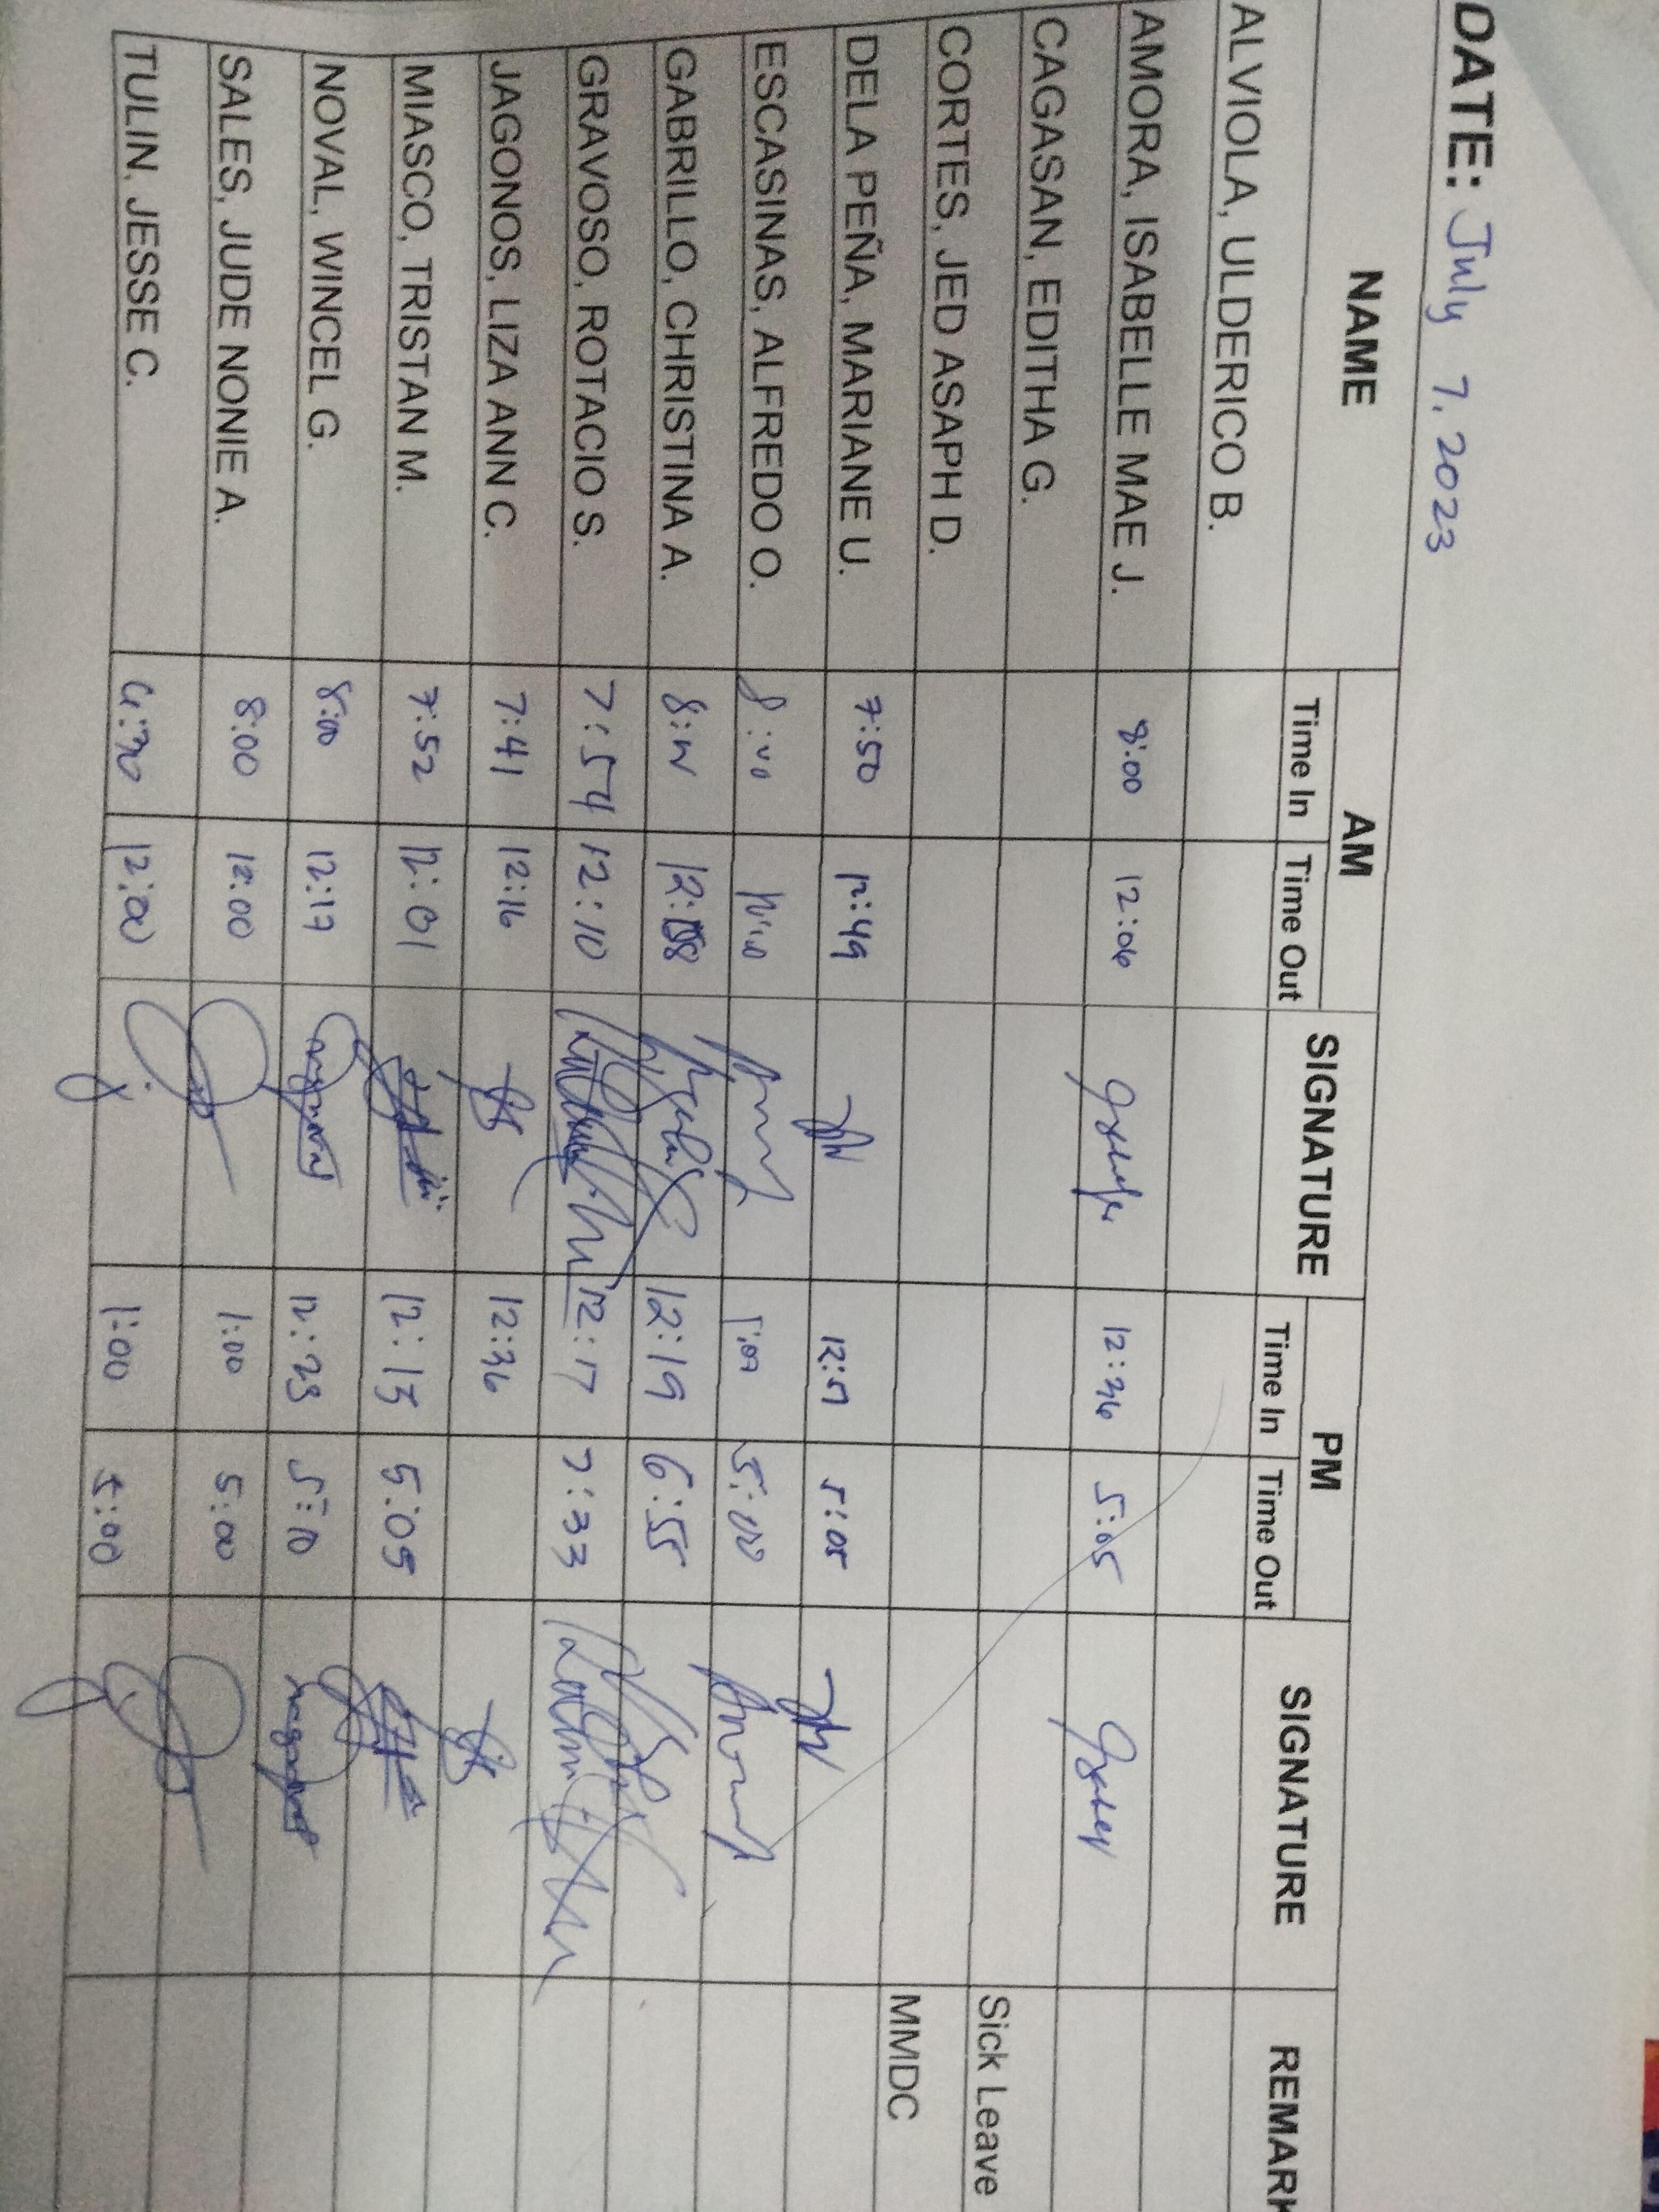 DATE: July 7, 2023
NAME AM SIGNATURE PM SIGNATURE REMARK
Time In Time Out Time In Time Out
ALVIOLA, ULDERICO B.
AMORA, ISABELLE MAE J. 8:00 12:06 12:36 5:05
CAGASAN, EDITHA G. Sick Leave
CORTES, JED ASAPH D. MMDC
DELA PEÑA, MARIANE U. 7:50 12:49 5:05
ESCASINAS, ALFREDO O. 8:00 5:00
GABRILLO, CHRISTINA A. 12:08 12:19 6:55
GRAVOSO, ROTACIO S. 7:54 12:10 12:17 7:33
JAGONOS, LIZA ANN C. 7:41 12:16 12:36
MIASCO, TRISTAN M. 7:52 12:01 12:15 5:05
NOVAL, WINCEL G. 8:00 12:17 12:23 5:10
SALES, JUDE NONIE A. 8:00 12:00 1:00 5:00
TULIN, JESSE C. 12:00 1:00 5:00